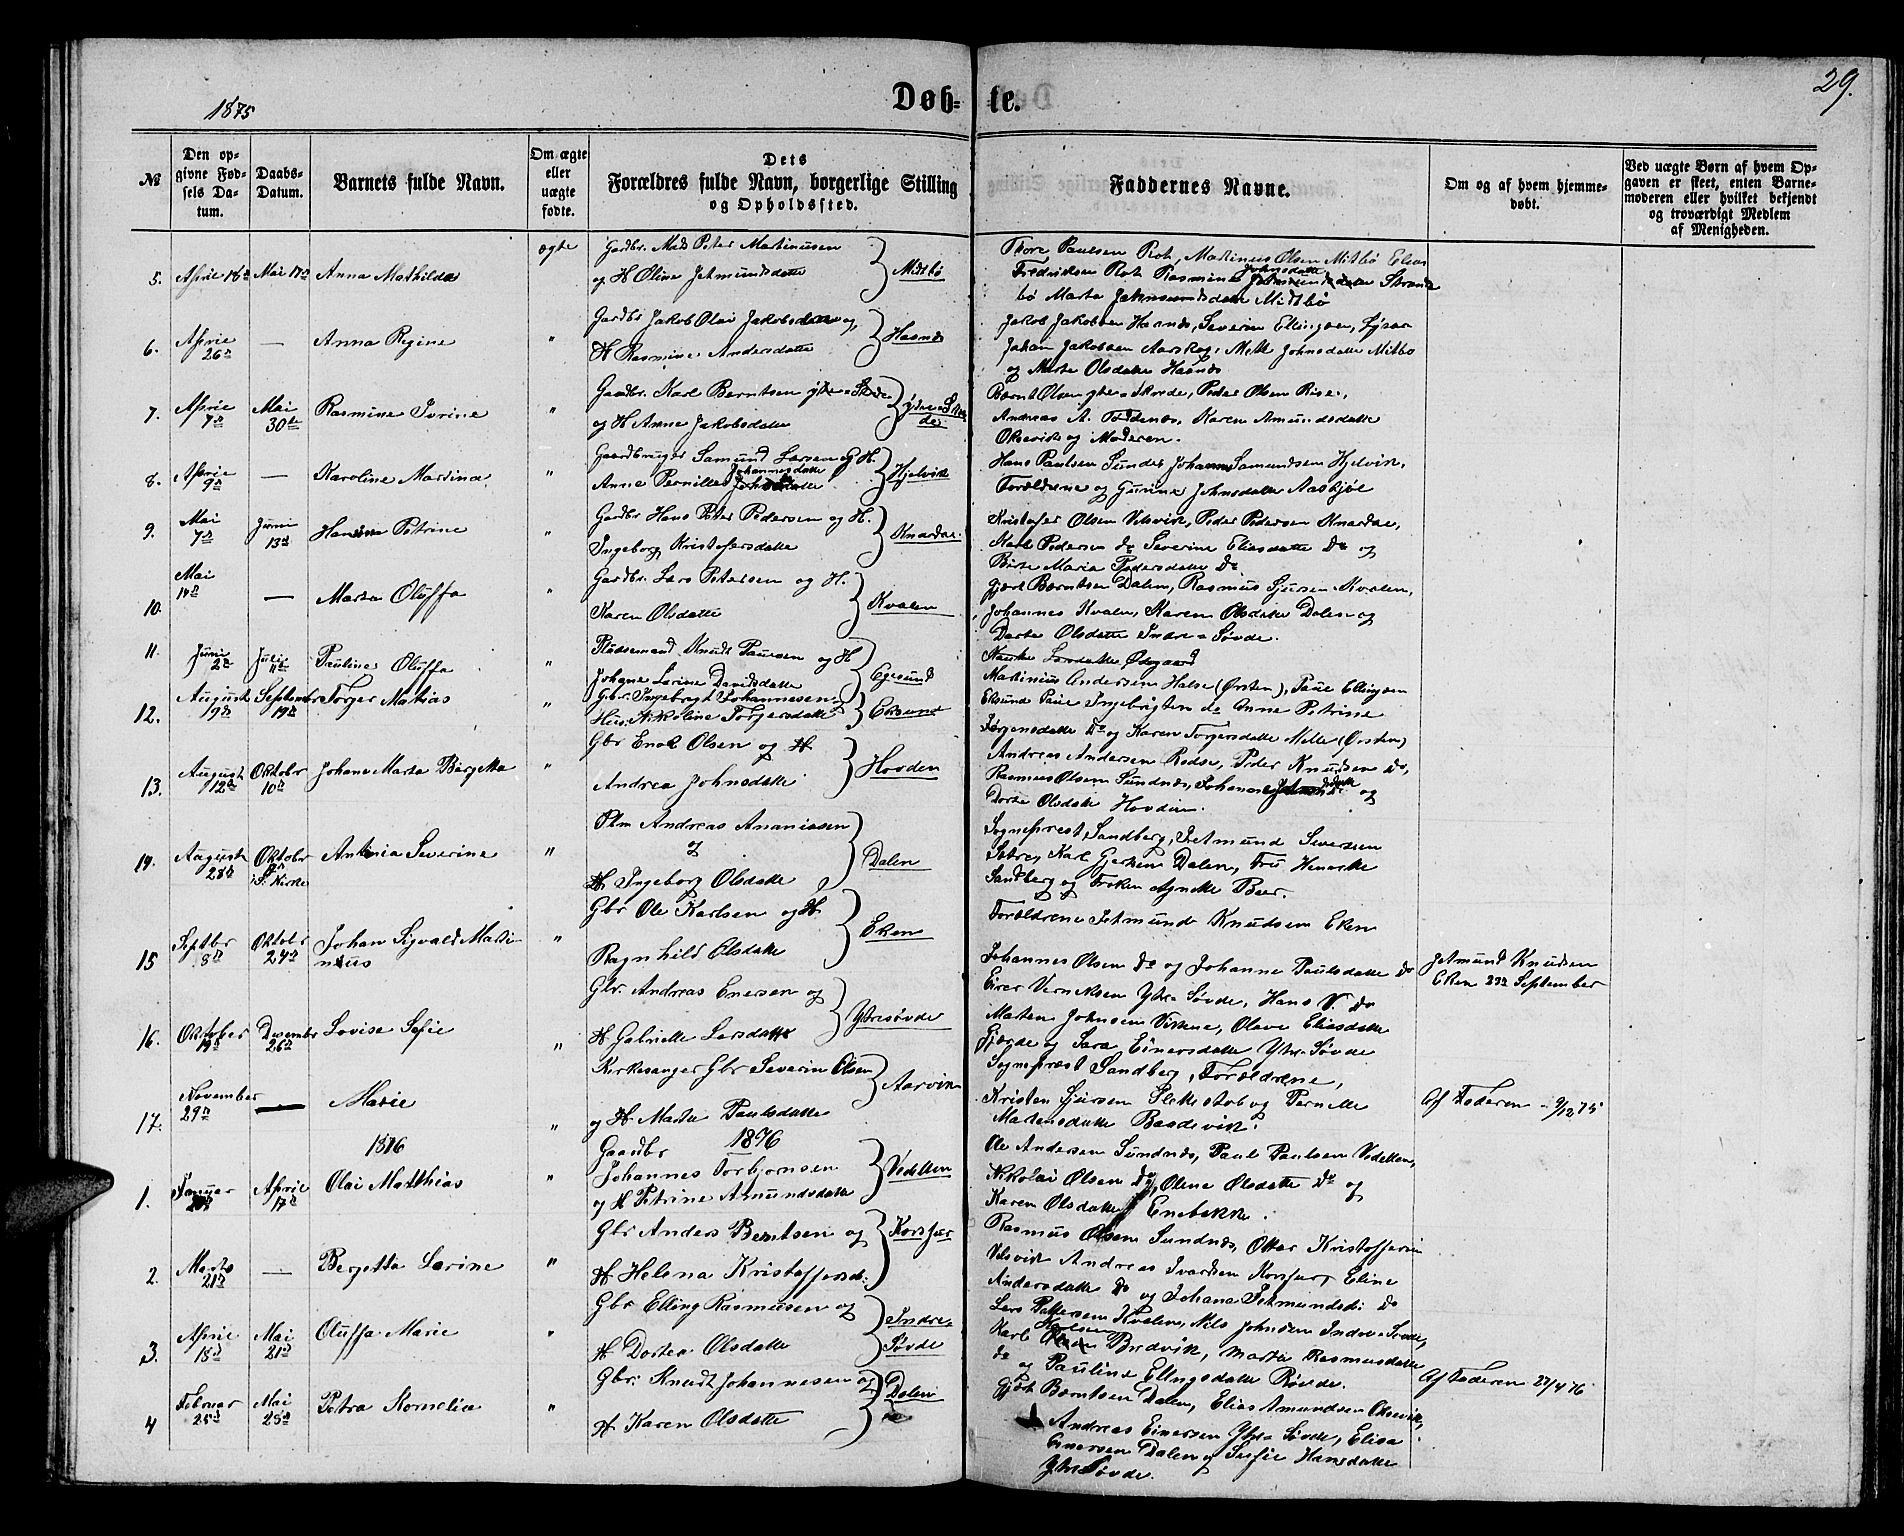 1875
Døb-
te.
29.
№
Den op-
givne Fød-
sels Da-
tum.
Daabs-
Datum.
Barnets fulde Navn.
Om ægte
eller
uægte
fødte.
Dets
Forældres fulde Navn, borgerlige Stilling
og Opholdssted.
Faddernes Navne.
Om og af hvem hjemme-
døbt.
Ved uægte Børn af hvem Op-
gaven er skeet, enten Barne-
moderen eller hvilket bekjendt
og troværdigt Medlem
af Menigheden.
5. April 18d Mai 17d Anna Mathilda ægte Gardbr. Mads Peter Martinusen
og H Oline Jetmundsdatte Midtbø
Thore Paulsen Rot, Martinus Olsen Mitbø Elias
Fredriksen Rot Rasmine Johnsdatte Strand
bø Marta Jetmundsdatte Midtbø
6. April 26d — Anna Regine " Gardbr Jakob Olai Jakobsen og
H Rasmine Andersdatte Haanes
Jakob Jakobsen Haanes, Severin Ellingsen,
Johan Jakobsen Aarskog, Mette Johnsdatte Mitbø
og Marte Olsdatte Haanes
7. April 7d Mai 30te Rasmine Iverine " Gaardbr. Karl Berntsen ytre-Skode
og H Anne Jakobsdatte
Bernt Olsen ytre-Skorde, Peder Olsen Rise,
Andreas A. Tødenæs, Karen Amundsdatte
Oksevik og Moderen.
8. April 9d — Karoline Martina " Gaardbruger Samund Larsen og H.
Anne Pernille Johannesdatte Hjelvik
Hans Paulsen Sundes Johan Samundsen Hjelvik,
Forældrene og Gurine Johnsdatte Aaskjøl
9. Mai 7d Juni 13d Hansina Petrine " Gardbr Hans Peter Pedersen og H.
Ingeborg Kristofersdatte Knardal
Kristofer Olsen Velsvik, Peder Pedersen Knardal,
Karl Pedersen do Severine Eliasdatte Do og
Birte Maria Pedersdatte Do
10. Mai 14d — Marta Oluffa " Gardbr. Lars Petersen og H.
Karen Olsdatte Kvalen
Gjert Berntsen Dalen, Rasmus Sjursen Kvalen,
Johannes Kvalen, Karen Olsdatte Dalen og
Dorte Olsdatte Indre-Søvde.
11. Juni 2d Juli Pauline Oluffa Pladsemand Knudt Paulsen og H
Johane Larine Davidsdatte Egesund
12. August 19d September 19d Torger Mathias " Gbr. Ingebrigt Johannesen
Hus. Nikoline Torgersdatte Eksund
Martinius Andersen Halse (Ørsten), Paul Ellingsen
Eksund Paul Ingebrigten do Anne Petrine
Torgersdatte Do og Karen Torgersdatte Melle (Ørsten)
13. August 12d Oktobr 10d Johane Marta Bergetta " Gbr Enok Olsen og H.
Andrea Johnsdatte Hovden
Andreas Andersen Rødse, Peder Knudsen Do,
Rasmus Olsen Sundnæs, Johanne og
Dorte Olsdatte Hovden.
14. August 28d Oktobr i S. Kirke Antonia Severine " Plm Andreas Ananiassen
og
H Ingeborg Olsdatte Dalen
Sogneprest Sandberg, Jetmund Seversen
Sætre, Karl Gjertsen Dalen, Fru Henrikke
Sandberg og Frøken Agnette Beer.
15 Septbr 8d Oktober 24d Johan Sigvald Marti-
nius " Gbr Ole Karlsen og H
Ragnhild Olsdatte Eken
Forældrene Jetmund Knudsen Eken
Johannes Olsen Do og Johanne Paulsdatte Do
Jetmund Knudsen
Eken September
16. Oktober 19d Desember 26d Lovise Sofie " Gbr. Andreas Enersen og
H Gabrielle Larsdatte Ytresøvde
Einer Verniksen Ytre Søvde, Hans V. Do
Marten Johnsen Vikene, Olave Eliasdatte
Gjærde og Sara Einersdatte Ytre Søvde
17. November 29d — Marie " Kirkesanger Gbr Severin Olsen
og H Marta Paulsdatte Aarvik
Sogneprest Sandberg, Forældrene,
Kristen Sjursen Slettestøb og Pernille
Martensdatte Baadsvik.
Af Faderen 9/12 75
1876
1876
1. Januar April 17d Olai Matthias " Gaardbr
Johannes Torbjornsen
og H Petrine Amundsdatte Vedeken
Ole Andersen Sundnæs, Paul Paulsen Vedeken,
Nikolai Olsen Do, Olena Olsdatte Do og
Karen Olsdatte Enebakke.
2. Marts 21d — Bergetta Larine " Gbr Anders Berntsen og
H Helena Kristoffersd: Korsfur
Rasmus Olsen Sundnæs, Ottar Kristoffersen
Velsvik Andreas Ivarsen Korsfur, Eline
Andersdatte Do og Johana Jetmundsd: Do
3. April 18d Mai 21d Oluffa Marie " Gbr Elling Rasmusen og
H Dortea Olsdatte Indre
Søvde
Lars Pettersen Kvalen, Nils Johnsen Indre-Søvde,
Karl Karlsen Bredvik, Marta Rasmusdatte
do og Pauline Ellingsdatte Røvde.
4 Februar 25d Mai 25d Petra Kornelia " Gbr. Knudt Johannesen og
H Karen Olsdatte Dalen
Gjert Berntsen Dalen, Elias Amundsen Oksevik,
Andreas Einersen Ytre Søvde, Elisa
Einersen Dalen og Sofie Hansdatte
Ytre Søvde.
Af Faderen 27/4 76